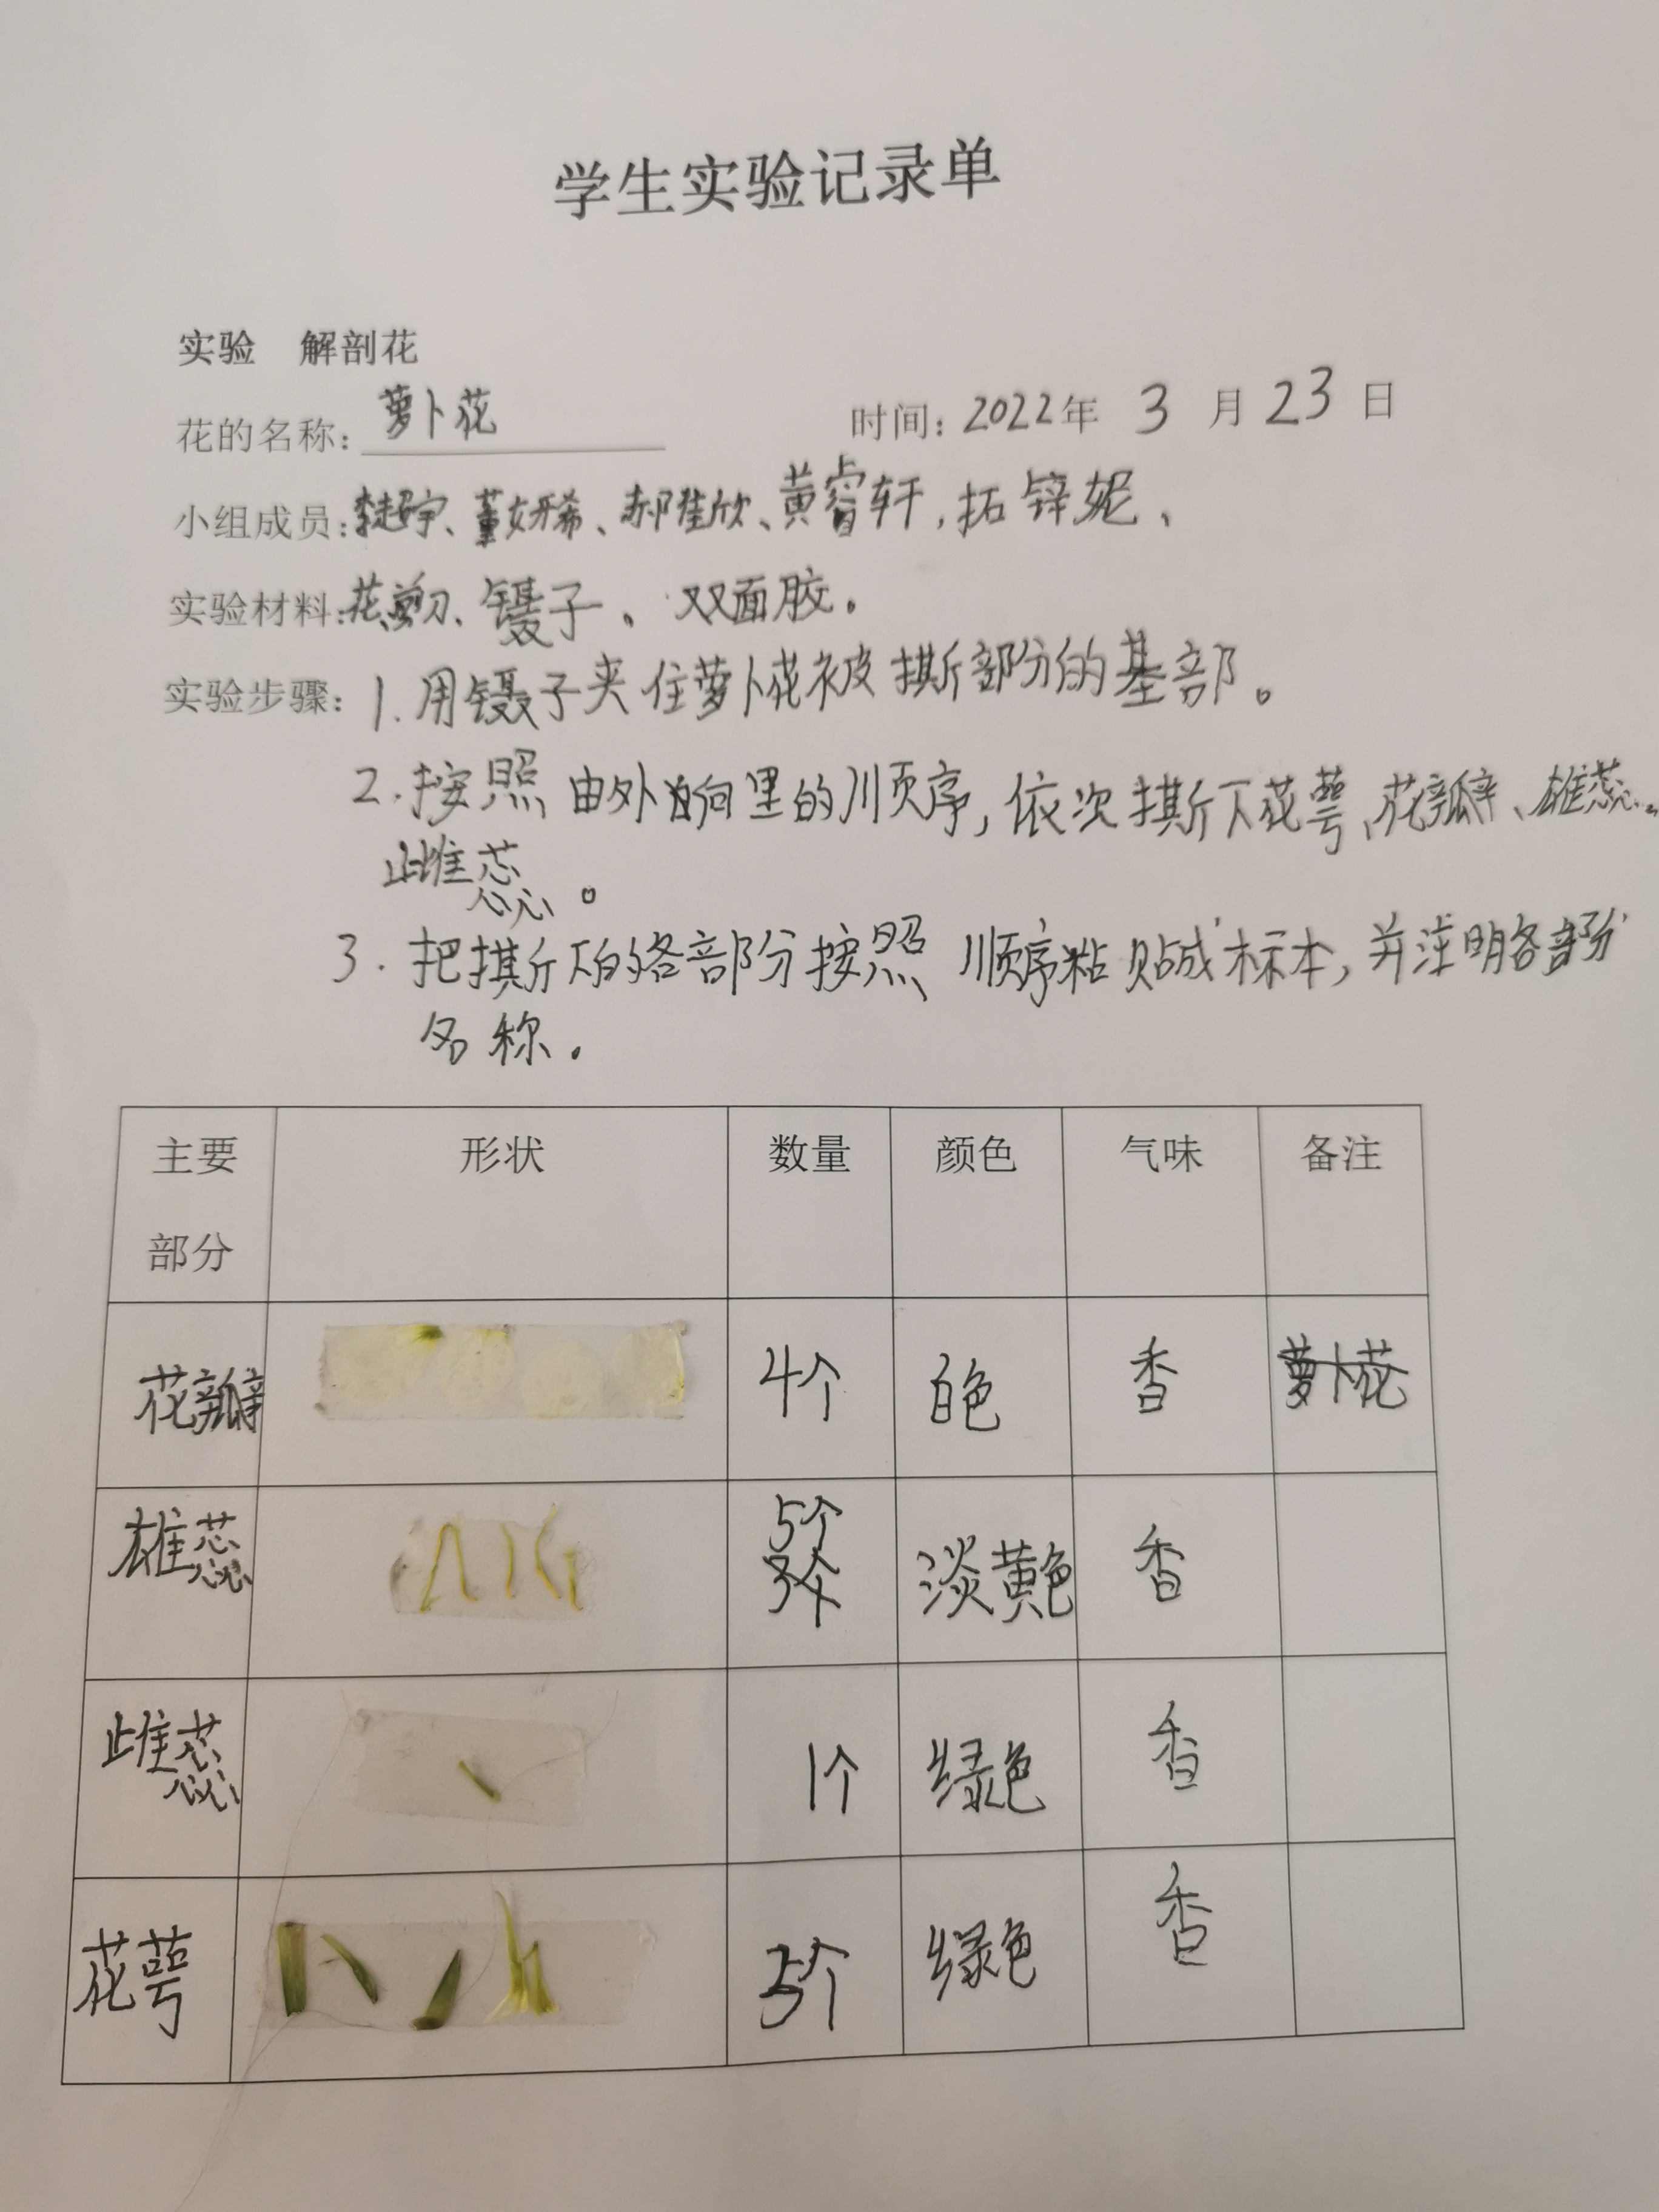 学生实验记录单
实验 解剖花
花的名称：萝卜花 时间：2022年 3 月 23 日
小组成员：李超宇、董妍希、郝佳欣、黄睿轩，拓锌妮、
实验材料：花、剪刀、镊子、双面胶。
实验步骤：1.用镊子夹住萝卜花被撕部分的基部。
2.按照由外向里的顺序，依次撕下花萼、花瓣、雄蕊、
雌蕊。
3.把撕下的各部分按照顺序粘贴成标本，并注明各部分
名称.
主要 形状 数量 颜色 气味 备注
部分
花瓣 4个 白色 香 萝卜花
雄蕊 5个 淡黄色 香
雌蕊 1个 绿色 香
花萼 5个 绿色 香